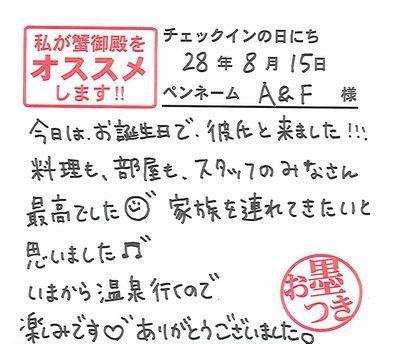 私が蟹御殿を
オススメ
します!!
チェックインの日にち
28年8月15日
ペンネーム A&F 様
今日は、お誕生日で、彼氏と来ました!!!
料理も、部屋も、スタッフのみなさん
最高でした 家族を連れてきたいと
思いました♫
いまから温泉行くので
楽しみです♡ ありがとうございました。
お墨つき